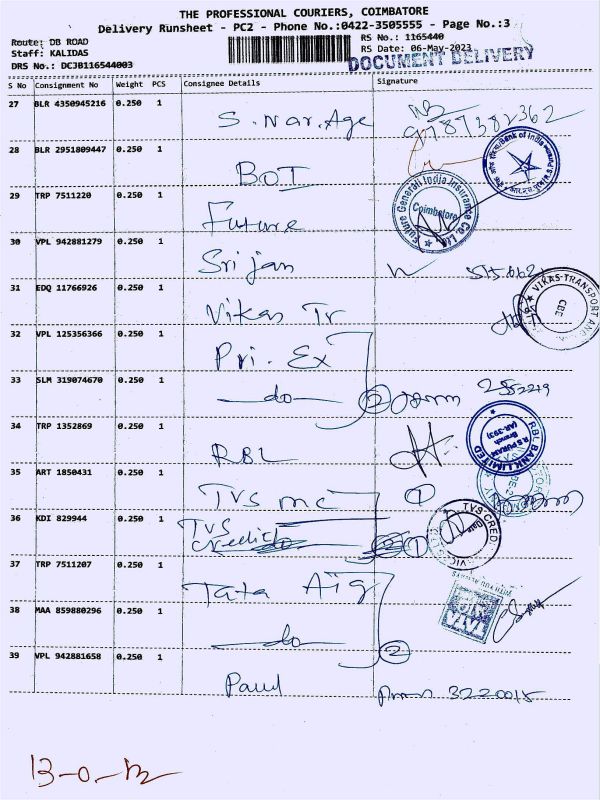 THE PROFESSIONAL COURIERS, COIMBATORE
Delivery Runsheet - PC2 - Phone No.:0422-3505555 - Page No.:3
Route: DB ROAD
RS No.: 1165440
Staff: KALIDAS
RS Date: 06-May-2023
DRS No.: DCJB116544003
DOCUMENT DELIVERY
S No Consignment No Weight PCS Consignee Details Signature
27 BLR 4350945216 0.250 1 S. Nar. Age
9787382362
28 BLR 2951809447 0.250 1 BOI
Bank of India
29 TRP 7511220 0.250 1 Future
Future Generali India Insurance Co. Ltd.
Coimbatore
30 VPL 942881279 0.250 1 Srijan
31 EDQ 11766926 0.250 1 Vikas Tr
VIKAS TRANSPORT AND
CBE
32 VPL 125356366 0.250 1 Pri. Ex
33 SLM 319074670 0.250 1 do 2 2552219
34 TRP 1352869 0.250 1 RBL
RBL BANK LIMITED
R S PURAM
Branch
(AR-393)
35 ART 1850431 0.250 1 TVS mc 1
36 KDI 829944 0.250 1 TVS Credit 1
TVS CREDIT
37 TRP 7511207 0.250 1 Tata Aig
38 MAA 859880296 0.250 1 do 2
39 VPL 942881658 0.250 1 Paul 3220015
13-0-